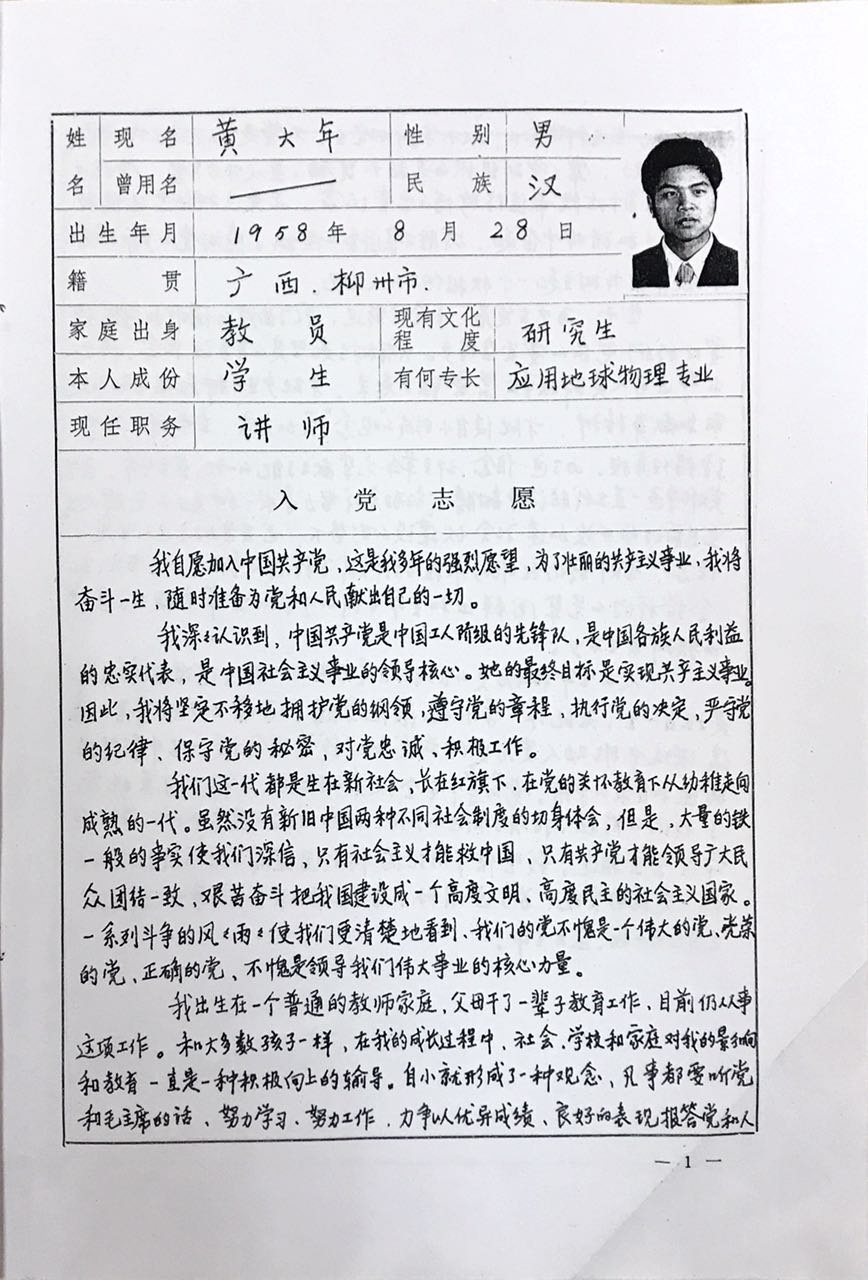 姓名 现名 黄大年 性别 男
曾用名 民族 汉
出生年月 1958年8月28日
籍贯 广西.柳州市.
家庭出身 教员 现有文化程度 研究生
本人成份 学生 有何专长 应用地球物理专业
现任职务 讲师
入党志愿
我自愿加入中国共产党,这是我多年的强烈愿望,为了壮丽的共产主义事业,我将
奋斗一生,随时准备为党和人民献出自己的一切。
我深々认识到,中国共产党是中国工人阶级的先锋队,是中国各族人民利益
的忠实代表,是中国社会主义事业的领导核心。她的最终目标是实现共产主义事业。
因此,我将坚定不移地拥护党的纲领,遵守党的章程,执行党的决定,严守党
的纪律、保守党的秘密,对党忠诚、积极工作。
我们这一代都是生在新社会、长在红旗下、在党的关怀教育下从幼稚走向
成熟的一代。虽然没有新旧中国两种不同社会制度的切身体会,但是,大量的铁
一般的事实使我们深信,只有社会主义才能救中国、只有共产党才能领导广大民
众团结一致、艰苦奋斗把我国建设成一个高度文明、高度民主的社会主义国家。
一系列斗争的风々雨々使我们更清楚地看到、我们的党不愧是一个伟大的党、光荣
的党、正确的党、不愧是领导我们伟大事业的核心力量。
我出生在一个普通的教师家庭,父母干了一辈子教育工作、目前仍从事
这项工作。和大多数孩子一样,在我的成长过程中、社会、学校和家庭对我的影响
和教育一直是一种积极向上的输导。自小就形成了一种观念、凡事都要听党
和毛主席的话、努力学习、努力工作、力争以优异成绩、良好的表现报答党和人
— 1 —